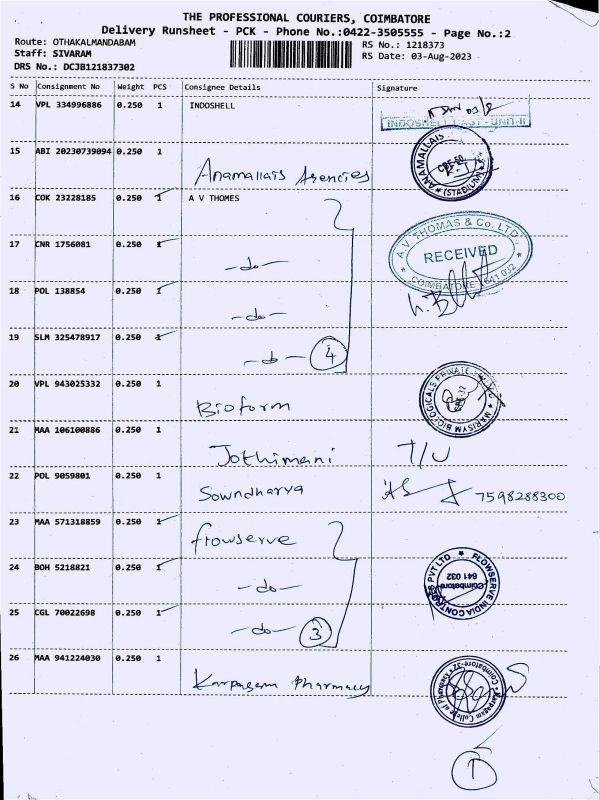 THE PROFESSIONAL COURIERS, COIMBATORE
Delivery Runsheet - PCK - Phone No.:0422-3505555 - Page No.:2
Route: OTHAKALMANDABAM
Staff: SIVARAM
DRS No.: DCJB121837302
RS No.: 1218373
RS Date: 03-Aug-2023
S No Consignment No Weight PCS Consignee Details Signature
14 VPL 334996886 0.250 1 INDOSHELL
INDOSHELL CAST - UNIT-II
15 ABI 20230739094 0.250 1 Anamallais Agencies
ANAMALLAIS (STADIUM)
16 COK 23228185 0.250 1 A V THOMES
17 CNR 1756081 0.250 1 -do-
A.V. THOMAS & Co. LTD.,
RECEIVED
COIMBATORE 641 032
18 POL 138854 0.250 1 -do-
19 SLM 325478917 0.250 1 -do- 4
20 VPL 943025332 0.250 1 Bioform
MARISYM BIOLOGICALS PRIVATE
21 MAA 106100886 0.250 1 Jothimani T/U
22 POL 9059801 0.250 1 Sowndharya 7598288300
23 MAA 571318859 0.250 1 frowserve
24 BOH 5218821 0.250 1 -do-
FLOWSERVE INDIA CONTROLS PVT LTD
Coimbatore
641 032
25 CGL 70022698 0.250 1 -do- 3
26 MAA 941224030 0.250 1 Karpagam Pharmacy
Karpagam College of Pharmacy
Coimbatore-32